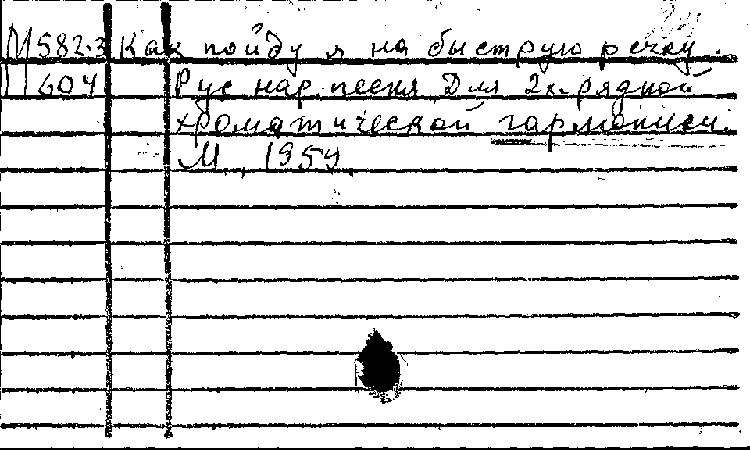 М582.3 Как пойду я на быструю речку.
П604 Рус нар песня Для 2х-рядной
хроматической гармонии.
М., 1954